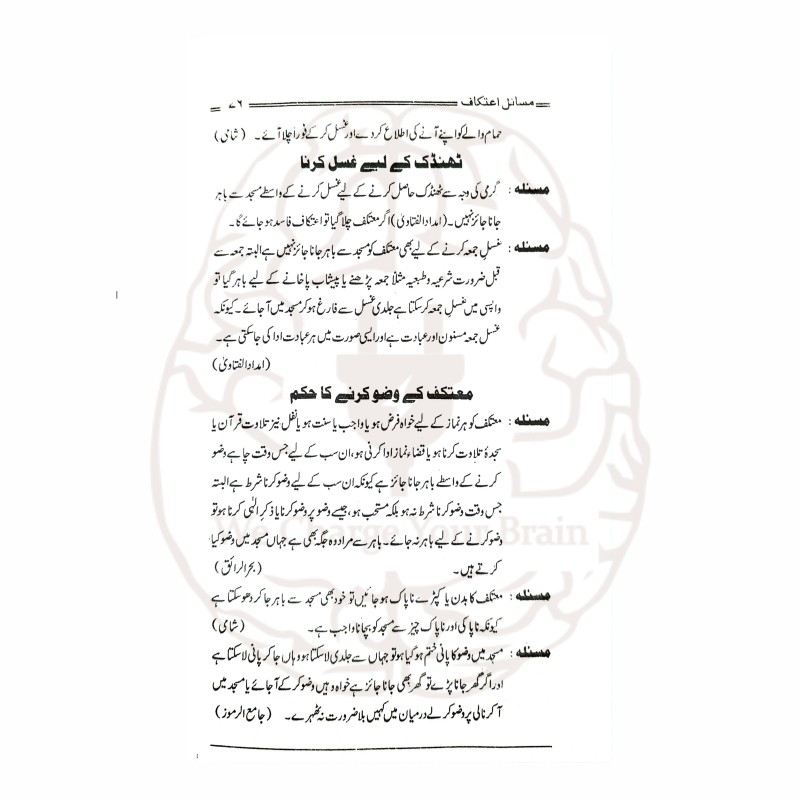 مسائل اعتکاف ۷۶
حمام والے کو اپنے آنے کی اطلاع کردے اور غسل کرکے فوراً چلا آئے۔ (شامی)
ٹھنڈک کے لیے غسل کرنا
مسئلہ : گرمی کی وجہ سے ٹھنڈک حاصل کرنے کے لیے غسل کرنے کے واسطے مسجد سے باہر
جانا جائز نہیں۔ (امداد الفتاویٰ) اگر معتکف چلا گیا تو اعتکاف فاسد ہو جائے گا۔
مسئلہ : غسلِ جمعہ کرنے کے لیے بھی معتکف کو مسجد سے باہر جانا جائز نہیں ہے البتہ جمعہ سے
قبل ضرورت شرعیہ و طبعیہ مثلاً جمعہ پڑھنے یا پیشاب پاخانے کے لیے باہر گیا تو
واپسی میں غسلِ جمعہ کر سکتا ہے جلدی غسل سے فارغ ہو کر مسجد میں آ جائے۔ کیونکہ
غسلِ جمعہ مسنون اور عبادت ہے اور ایسی صورت میں ہر عبادت ادا کی جا سکتی ہے۔
(امداد الفتاویٰ)
معتکف کے وضو کرنے کا حکم
مسئلہ : معتکف کو ہر نماز کے لیے خواہ فرض ہو یا واجب یا سنت ہو یا نفل نیز تلاوت قرآن یا
سجدۂ تلاوت کرنا ہو یا قضاء نماز ادا کرنی ہو، ان سب کے لیے جس وقت چاہے وضو
کرنے کے واسطے باہر جانا جائز ہے کیونکہ ان سب کے لیے وضو کرنا شرط ہے البتہ
جس وقت وضو کرنا شرط نہ ہو بلکہ مستحب ہو، جیسے وضو پر وضو کرنا یا ذکر الٰہی کرنا ہو تو
وضو کرنے کے لیے باہر نہ جائے۔ باہر سے مراد وہ جگہ بھی ہے جہاں مسجد میں وضو کیا
کرتے ہیں۔ (بحر الرائق)
مسئلہ : معتکف کا بدن یا کپڑے ناپاک ہو جائیں تو خود بھی مسجد سے باہر جا کر دھو سکتا ہے
کیونکہ ناپاکی اور ناپاک چیز سے مسجد کو بچانا واجب ہے۔ (شامی)
مسئلہ : مسجد میں وضو کا پانی ختم ہو گیا ہو تو جہاں سے جلدی لا سکتا ہو وہاں جا کر پانی لا سکتا ہے
اور اگر گھر جانا پڑے تو گھر بھی جانا جائز ہے خواہ وہیں وضو کر کے آ جائے یا مسجد میں
آ کر نالی پر وضو کر لے درمیان میں کہیں بلا ضرورت نہ ٹھہرے۔ (جامع الرموز)
We Charge Your Brain